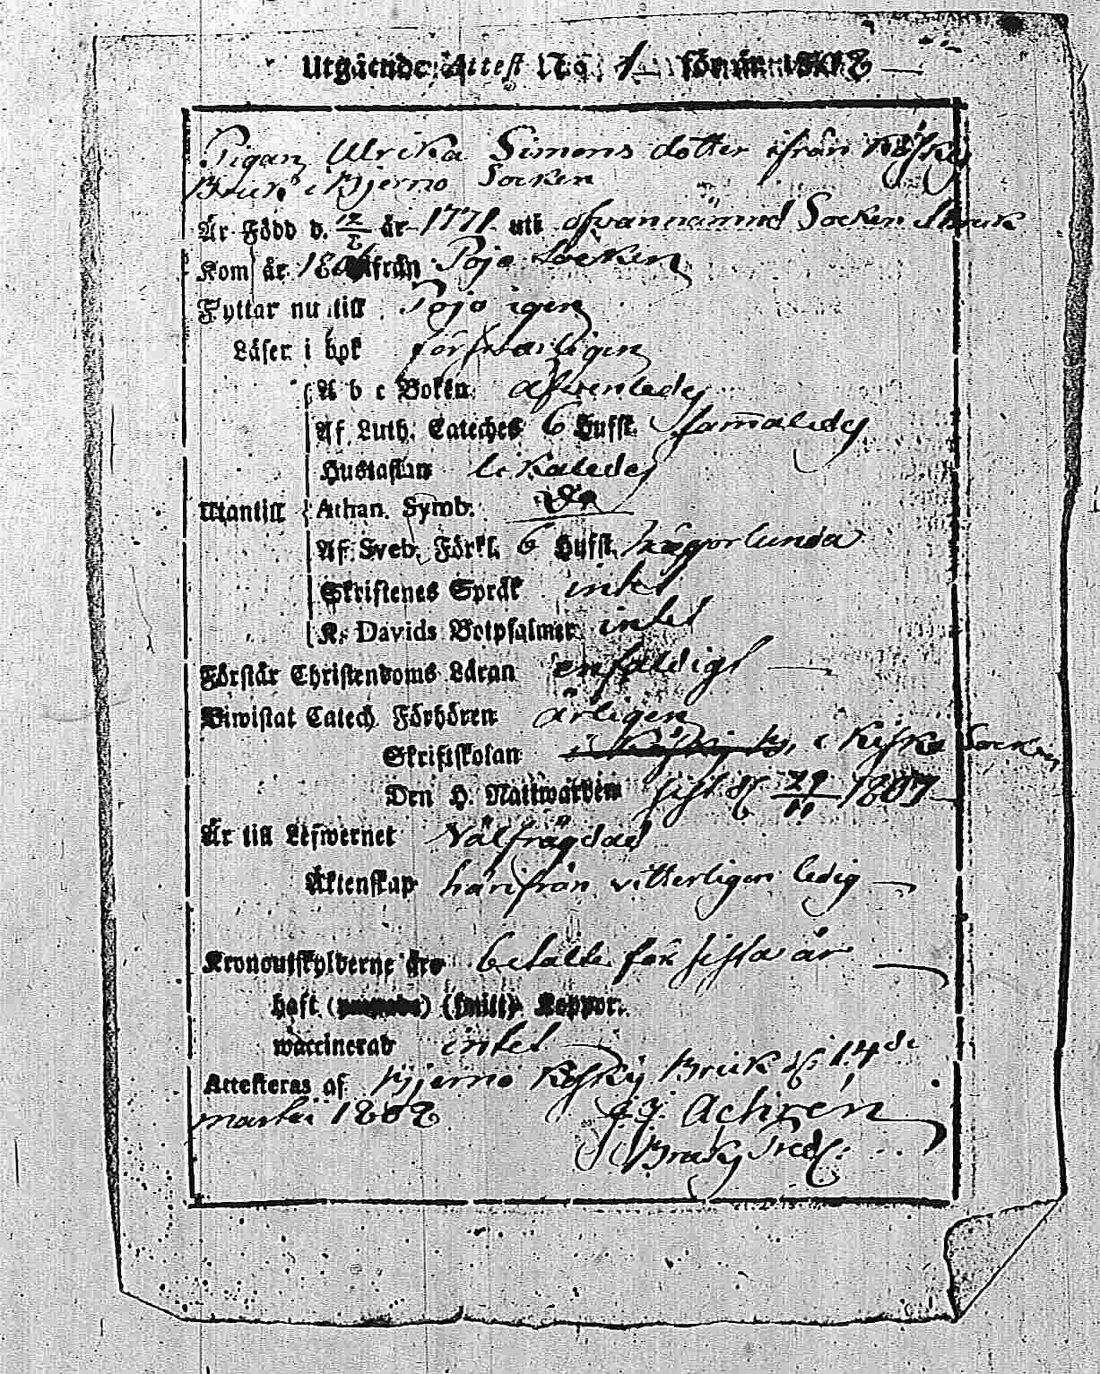 Utgående Attest No. 1 för år 1808
Pigan Ulrika Simons dotter ifrån Koski
Bruk i Bjerno Socken
Är Född d. 12/2 år 1771 uti ofvannämnd Socken
Kom år ifrån Pojo Socken
Fyttar nu till Pojo igen
Läser i bok försvarligen
A b c Boken äfwenledes
Af Luth. Cateches 6 Hufst. sammaledes
Hustaflan likaledes
Utantill Athan. Symb. do
Af Sveb. Förkl. 6 Hufst. någorlunda
Skriftenes Språk intet
K. Davids Botpsalmer intet
Förstår Christendoms Läran enfaldigt
Biwistat Catech. Förhören årligen
Skriftskolan i Kisko Socken
Den H. Nattwarden sist d. 29/11 1807
Är till Lefwernet Välfrägdad
Äktenskap härifrån vitterligen ledig
Kronoutskylderne äro betalte för sista år
haft (smitt) Koppor.
waccinerad intet
Attesteras af Bjerno Koski Bruk d. 14de
martii 1808 Achrén
Bruks Pred.